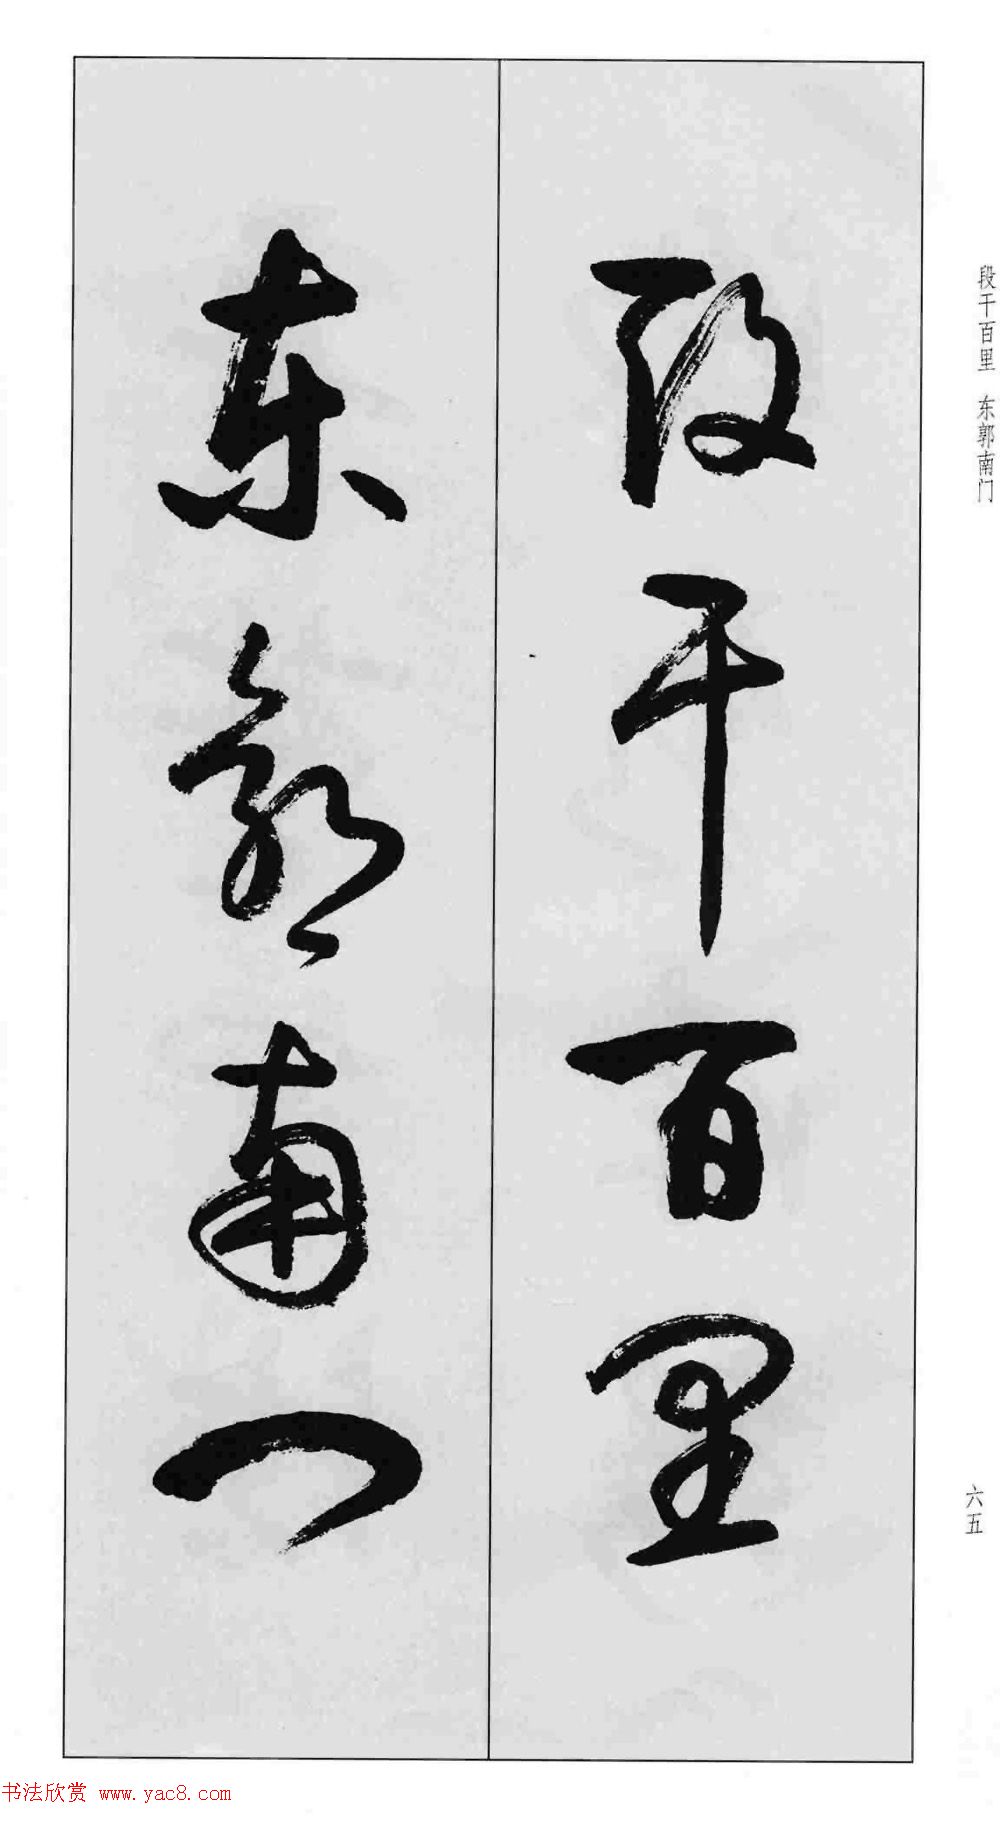 段干百里 东郭南门
段干百里
东郭南门
六五
书法欣赏 www.yac8.com